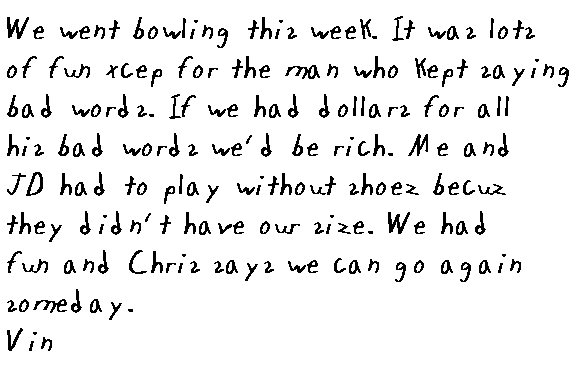 We went bowling this week. It was lots
of fun xcep for the man who kept saying
bad words. If we had dollars for all
his bad words we'd be rich. Me and
JD had to play without shoes becuz
they didn't have our size. We had
fun and Chris says we can go again
someday.
Vin